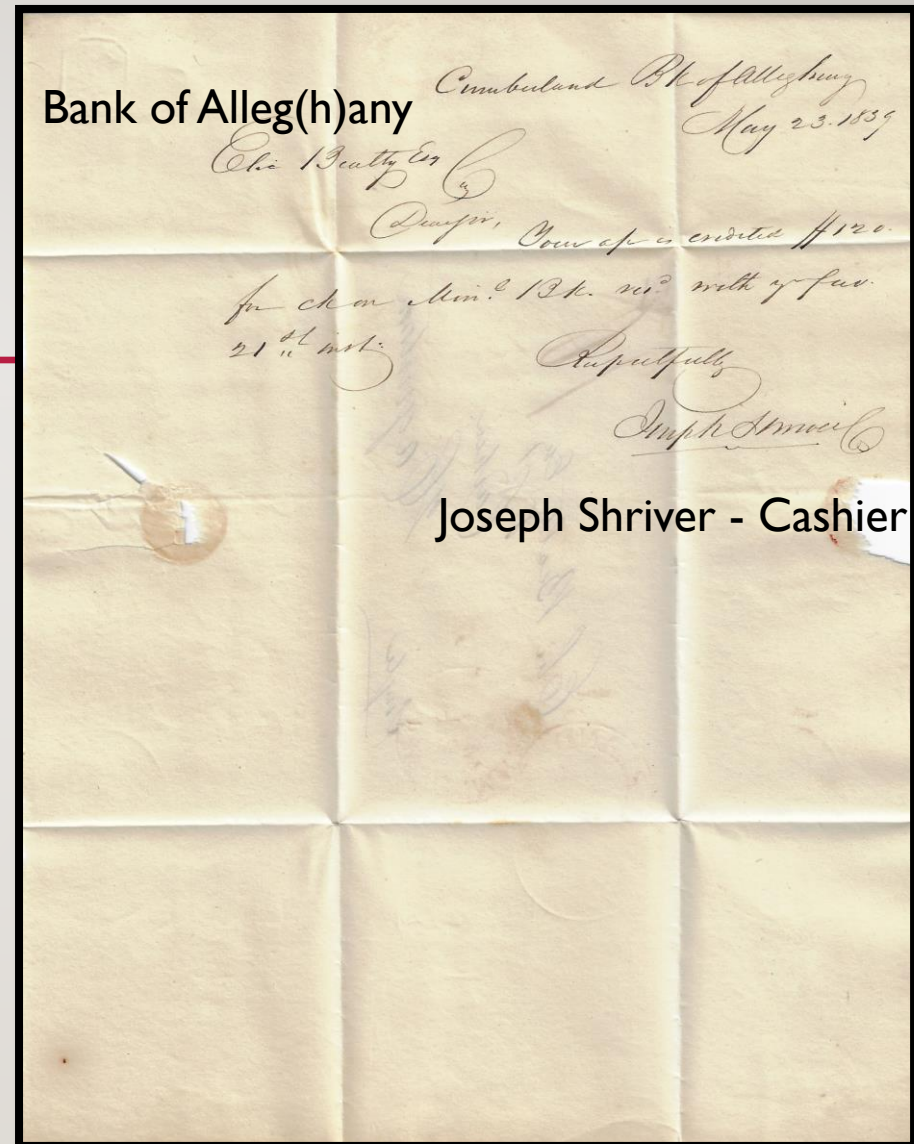 Bank of Alleg(h)any
Cumberland Bk of Alleghany
May 23. 1839
Elie Beatty Esq
Cas
Dear Sir,
Your a/c is credited $120.
for ck on Min.l Bk. rec.d with yr fav.
21st inst.
Respectfully
Joseph Shriver Cas
Joseph Shriver - Cashier